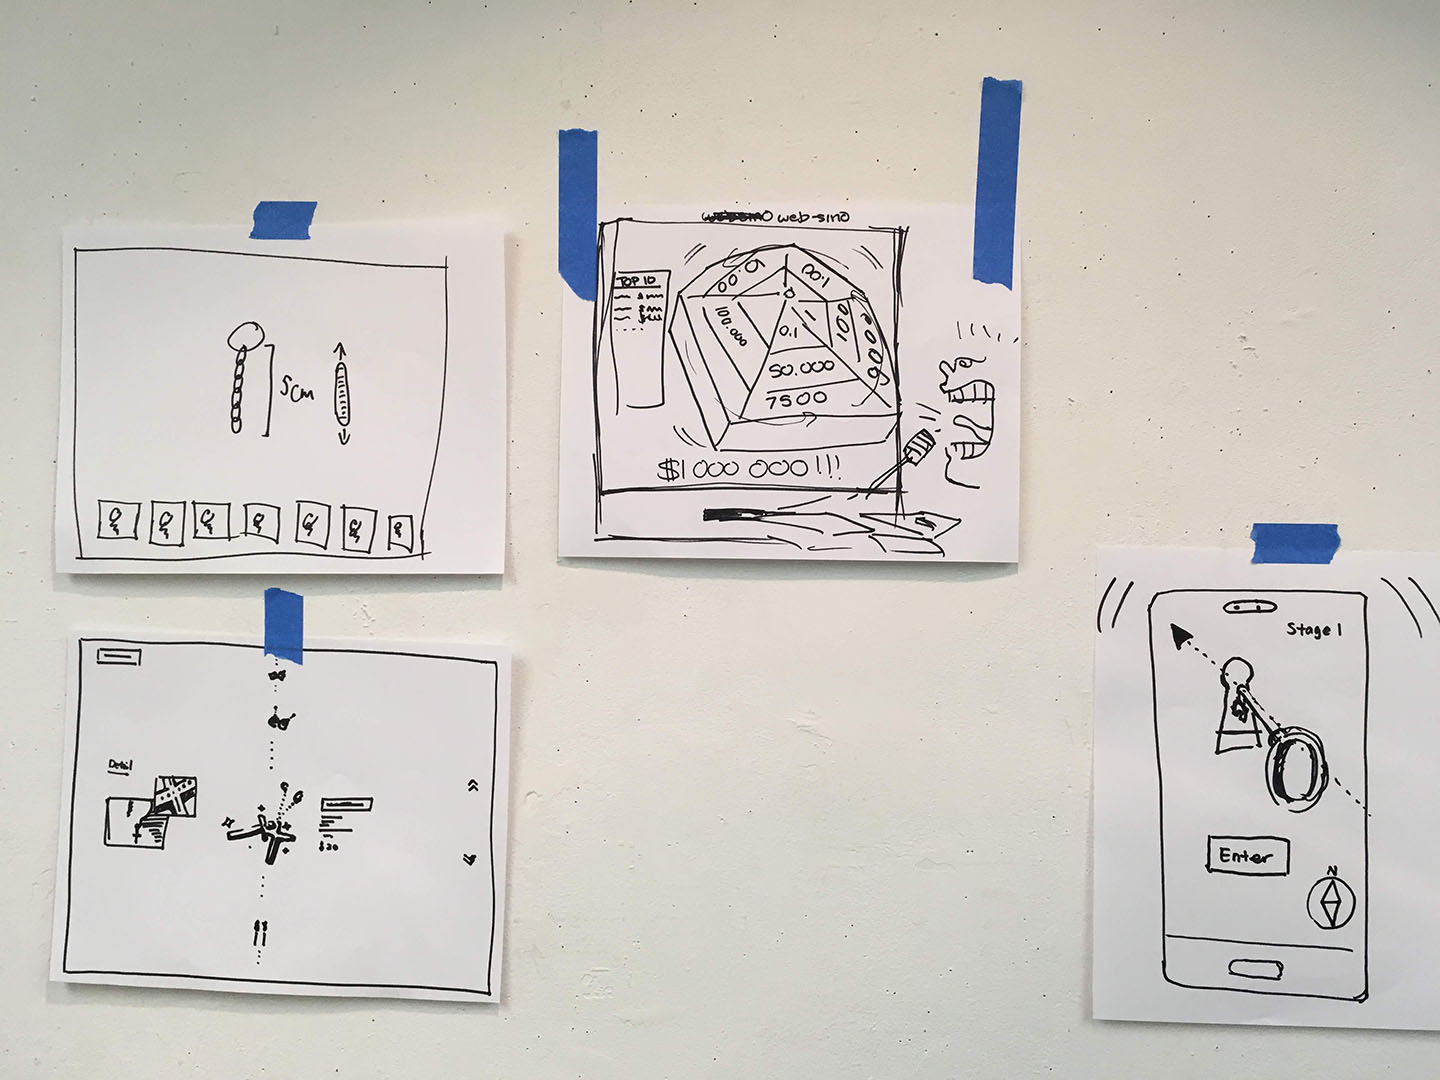 5cm
web-sino
TOP 10
0.00
00.1
100.000
0.1
100
9000
50.000
7500
$1 000 000!!!
Detail
$20
Stage 1
Enter
N